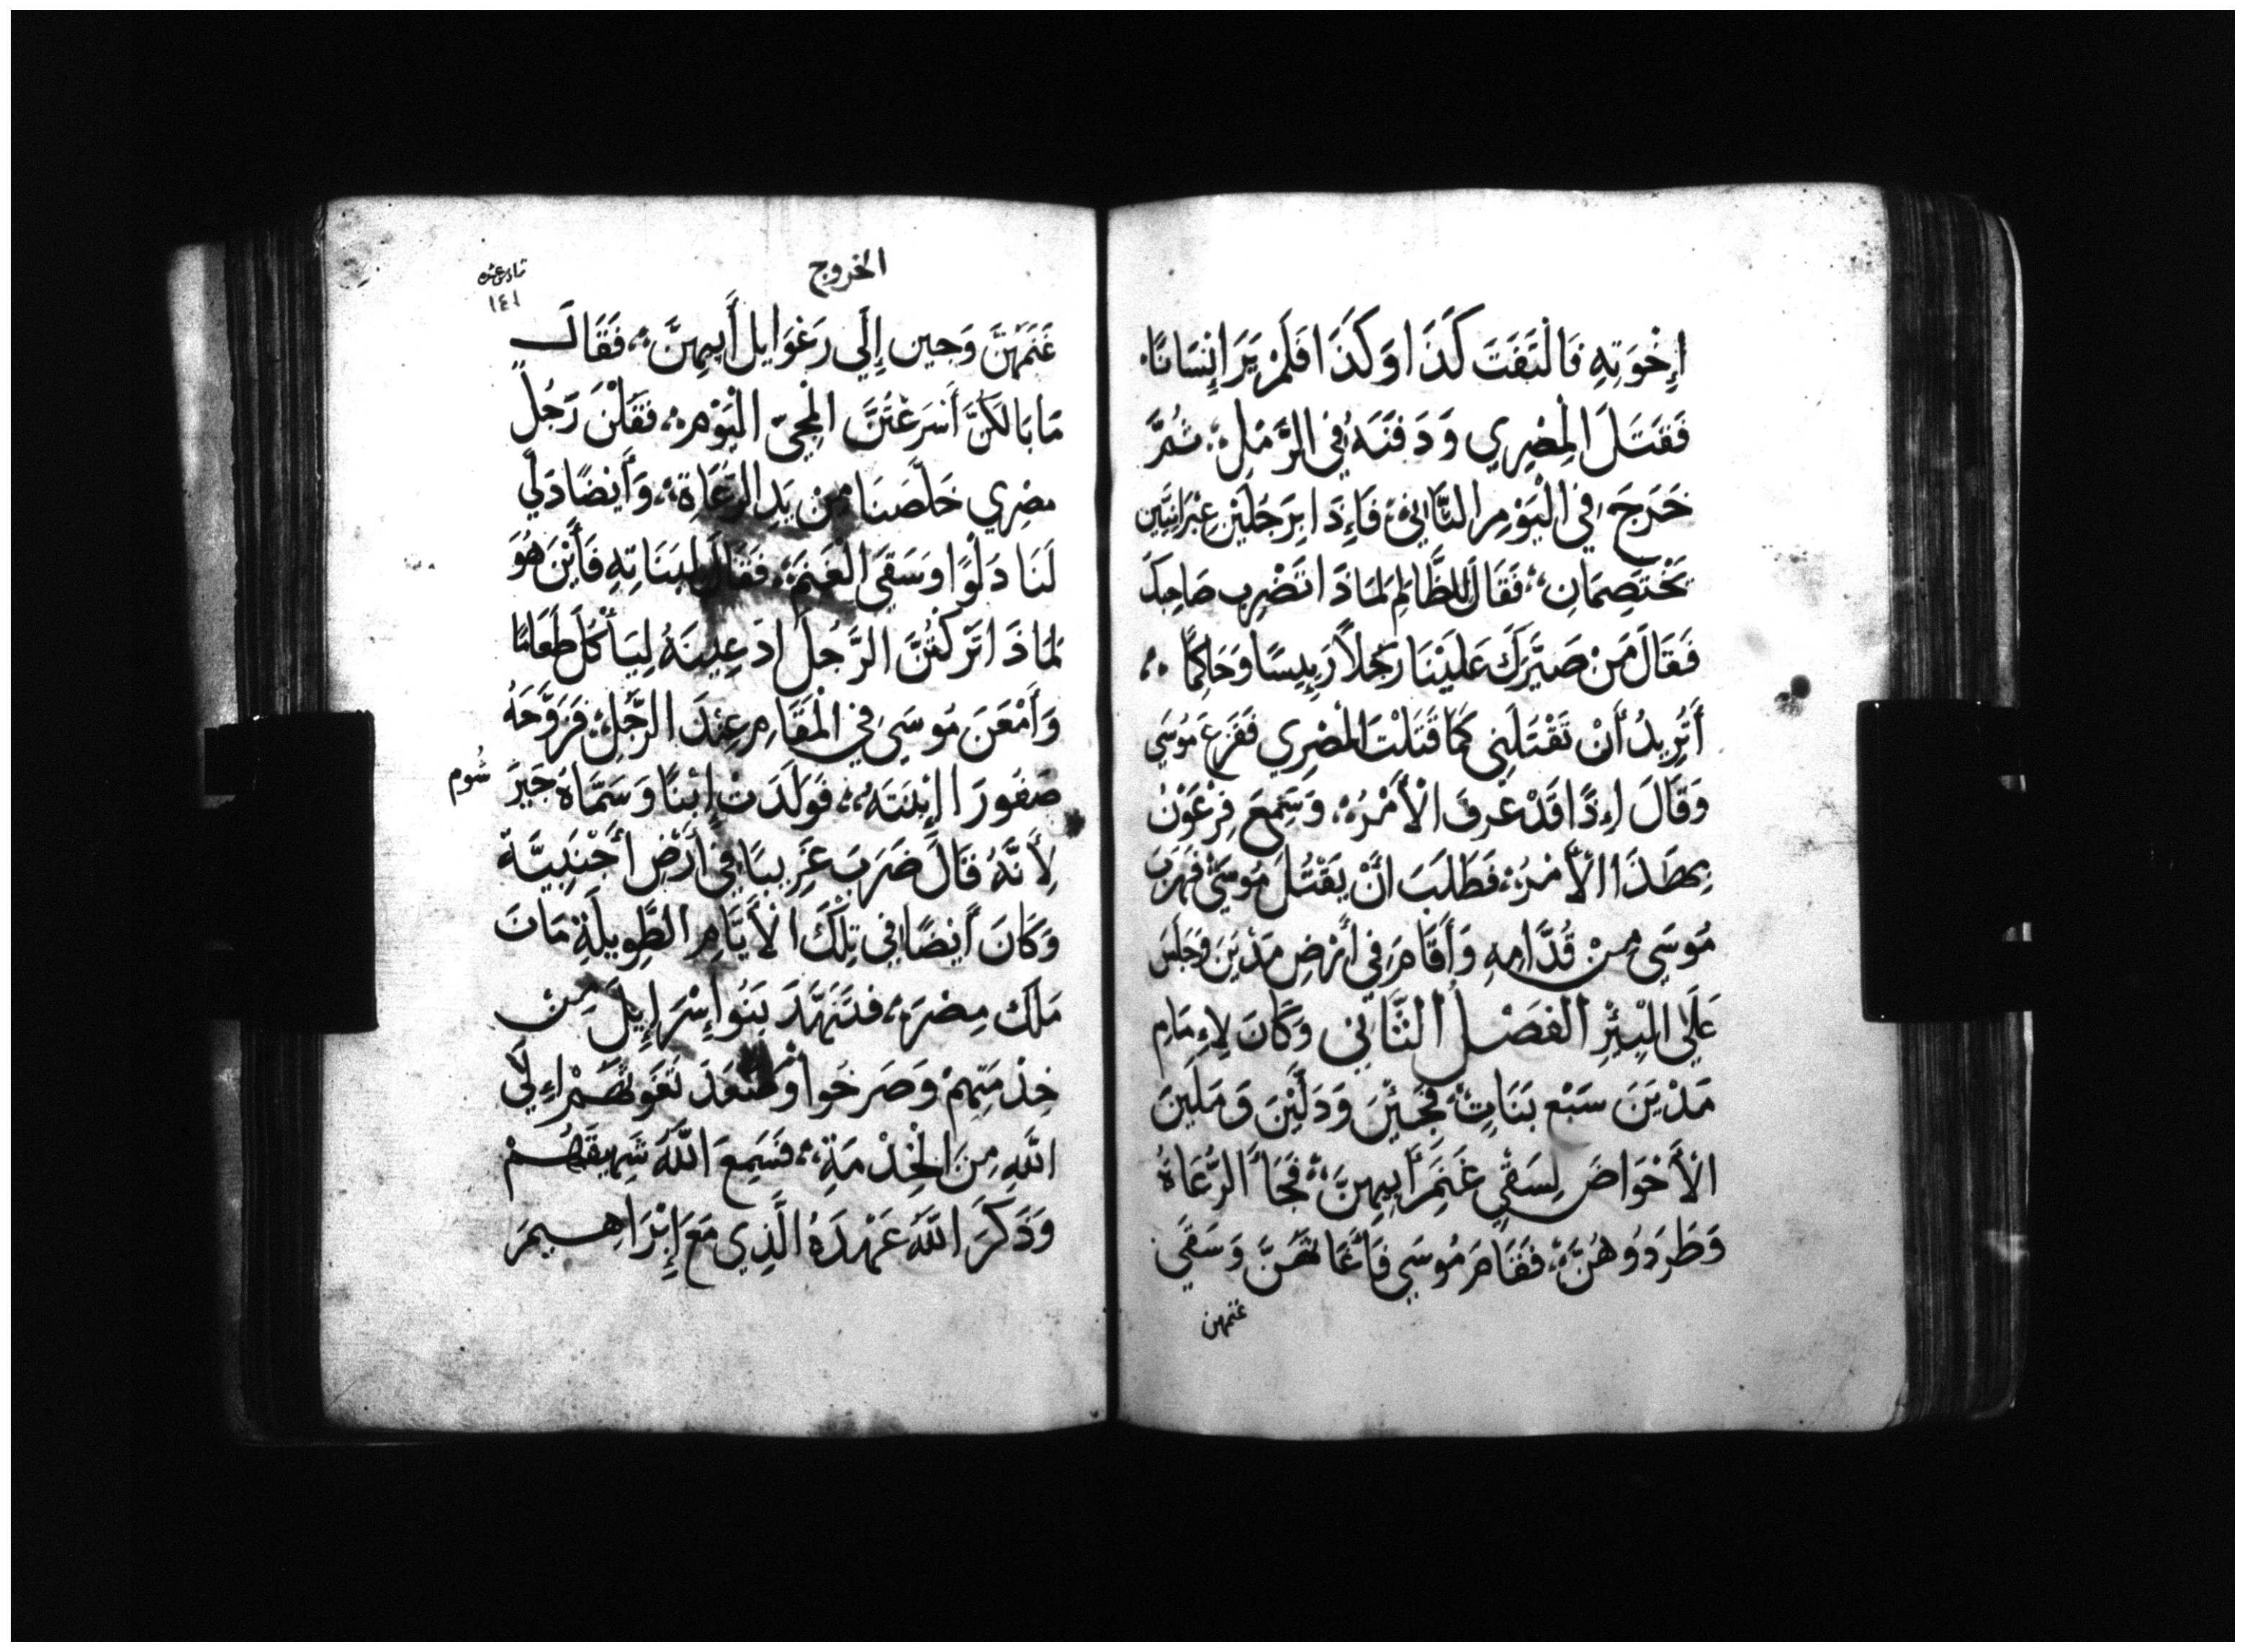 إِخْوَتِهِ فَالْتَفَتَ كَذَا وَكَذَا فَلَمْ يَرَ إِنْسَانًا
فَقَتَلَ الْمِصْرِي وَدَفَنَهُ فِي الرَّمْلِ ثُمَّ
خَرَجَ فِي الْيَوْمِ الثَّانِي فَإِذَا بِرَجُلَيْنِ عِبْرَانِيَّيْنِ
يَخْتَصِمَانِ فَقَالَ لِلظَّالِمِ لِمَاذَا تَضْرِب صَاحِبَكَ
فَقَالَ مَنْ صَيَّرَكَ عَلَيْنَا رَجُلاً رَيِيسًا وَحَاكِمًا
أَتُرِيدُ أَنْ تَقْتُلَنِي كَمَا قَتَلْتَ الْمِصْرِي فَفَزِعَ مُوسَي
وَقَالَ اءِذًا قَدْ عُرِفَ الْأَمْرُ وَسَمِعَ فِرْعَوْنُ
بِهَذَا الْأَمْرِ فَطَلَبَ أَنْ يَقْتُلَ مُوسَي فَهَرَبَ
مُوسَي مِنْ قُدَّامِهِ وَأَقَامَ فِي أَرْضِ مَدْيَنَ وَجَلَسَ
عَلَي الْبِئْرِ الفَصْل الثَّانِي وَكَانَ لِإِمَامِ
مَدْيَنَ سَبْع بَنَاتٍ فَجِئْنَ وَدَلَّيْنَ وَمَلَيْنَ
الْأَحْوَاضَ لِسَقْيِ غَنَمِ أَبِيهِنَّ فَجَاَ الرُّعَاةُ
وَطَرَدُوهُنَّ فَقَامَ مُوسَي فَأَغَاثَهُنَّ وَسَقَي
غنمهن
الخروج
١٤١
غَنَمَهُنَّ وَجِين إِلَي رَغْوَايل أَبِيهِنَّ فَقَالَ
مَا بَالَكُنَّ أَسْرَعْتُنَّ الْمَجِيّ الْيَوْم فَقُلْنَ رَجُلٌ
مِصْرِي خَلَّصَنَا مِنْ يَدِ الرُّعَاةِ وَأَيْضًا دَلَّي
لَنَا دَلْوًا وَسَقَي الْغَنَمَ فَقَالَ لِبَنَاتِهِ فَأَيْنَ هُوَ
لِمَاذَا تَرَكْتُنَّ الرَّجُلَ ادْعِينَهُ لِيَأْكُلَ طَعَامًا
وَأَمْعَنَ مُوسَي فِي الْمَقَامِ عِنْدَ الرَّجُلِ فَزَوَّجَهُ
صَفُورَا ابْنَتَهُ فَوَلَدَتْ إِبْنًا وَسَمَّاهُ جَيرَ شُوم
لِأَنَّهُ قَالَ ضَرَبَ غَرِيبًا فِي أَرْضٍ أَجْنَبِيَّة
وَكَانَ أَيْضًا فِي تِلْكَ الْأَيَّامِ الطَّوِيلَةِ مَاتَ
مَلَك مِصْرَ فَتَنَهَّدَ بَنُوا إِسْرَايِيلَ مِنْ
خِدْمَتِهِمْ وَصَرَخُوا
اللَّهِ مِنَ الْخِدْمَةِ فَسَمِعَ اللَّهَ شَهِيقَهُمْ
وَذَكَرَ اللَّهَ عَهْدَهُ الَّذِي مَعَ إِبْرَاهِيمَ